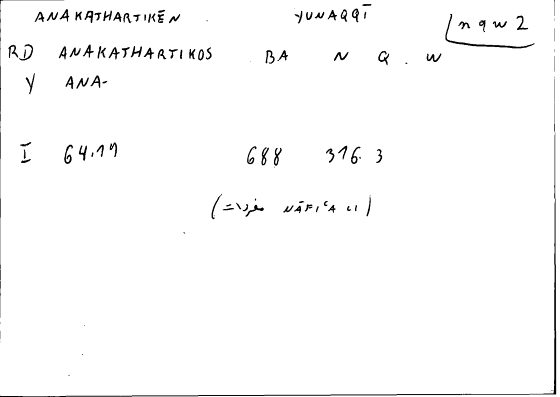 ANAKATHARTIKĒN YUNAQQĪ nqw2
RD ANAKATHARTIKOS BA N Q . W
Y ANA-
I 64.19 688 316.3
(مفردات NĀFIʿA LI)